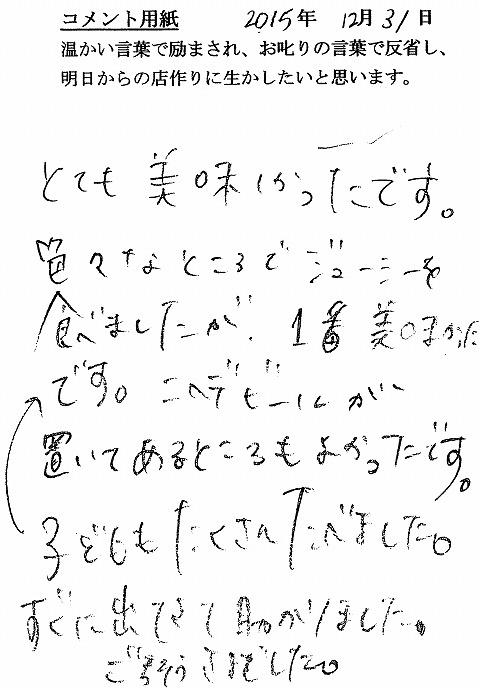 コメント用紙 2015年 12月 31日
温かい言葉で励まされ、お叱りの言葉で反省し、
明日からの店作りに生かしたいと思います。
とても 美味しかったです。
色々なところで ジューシーを
食べましたが、1番 美味かった
です。 ニヘデビールが
置いてあるところもよかったです。
子どももたくさんたべました。
すぐに出てきて助かりました。
ごちそうさまでした。